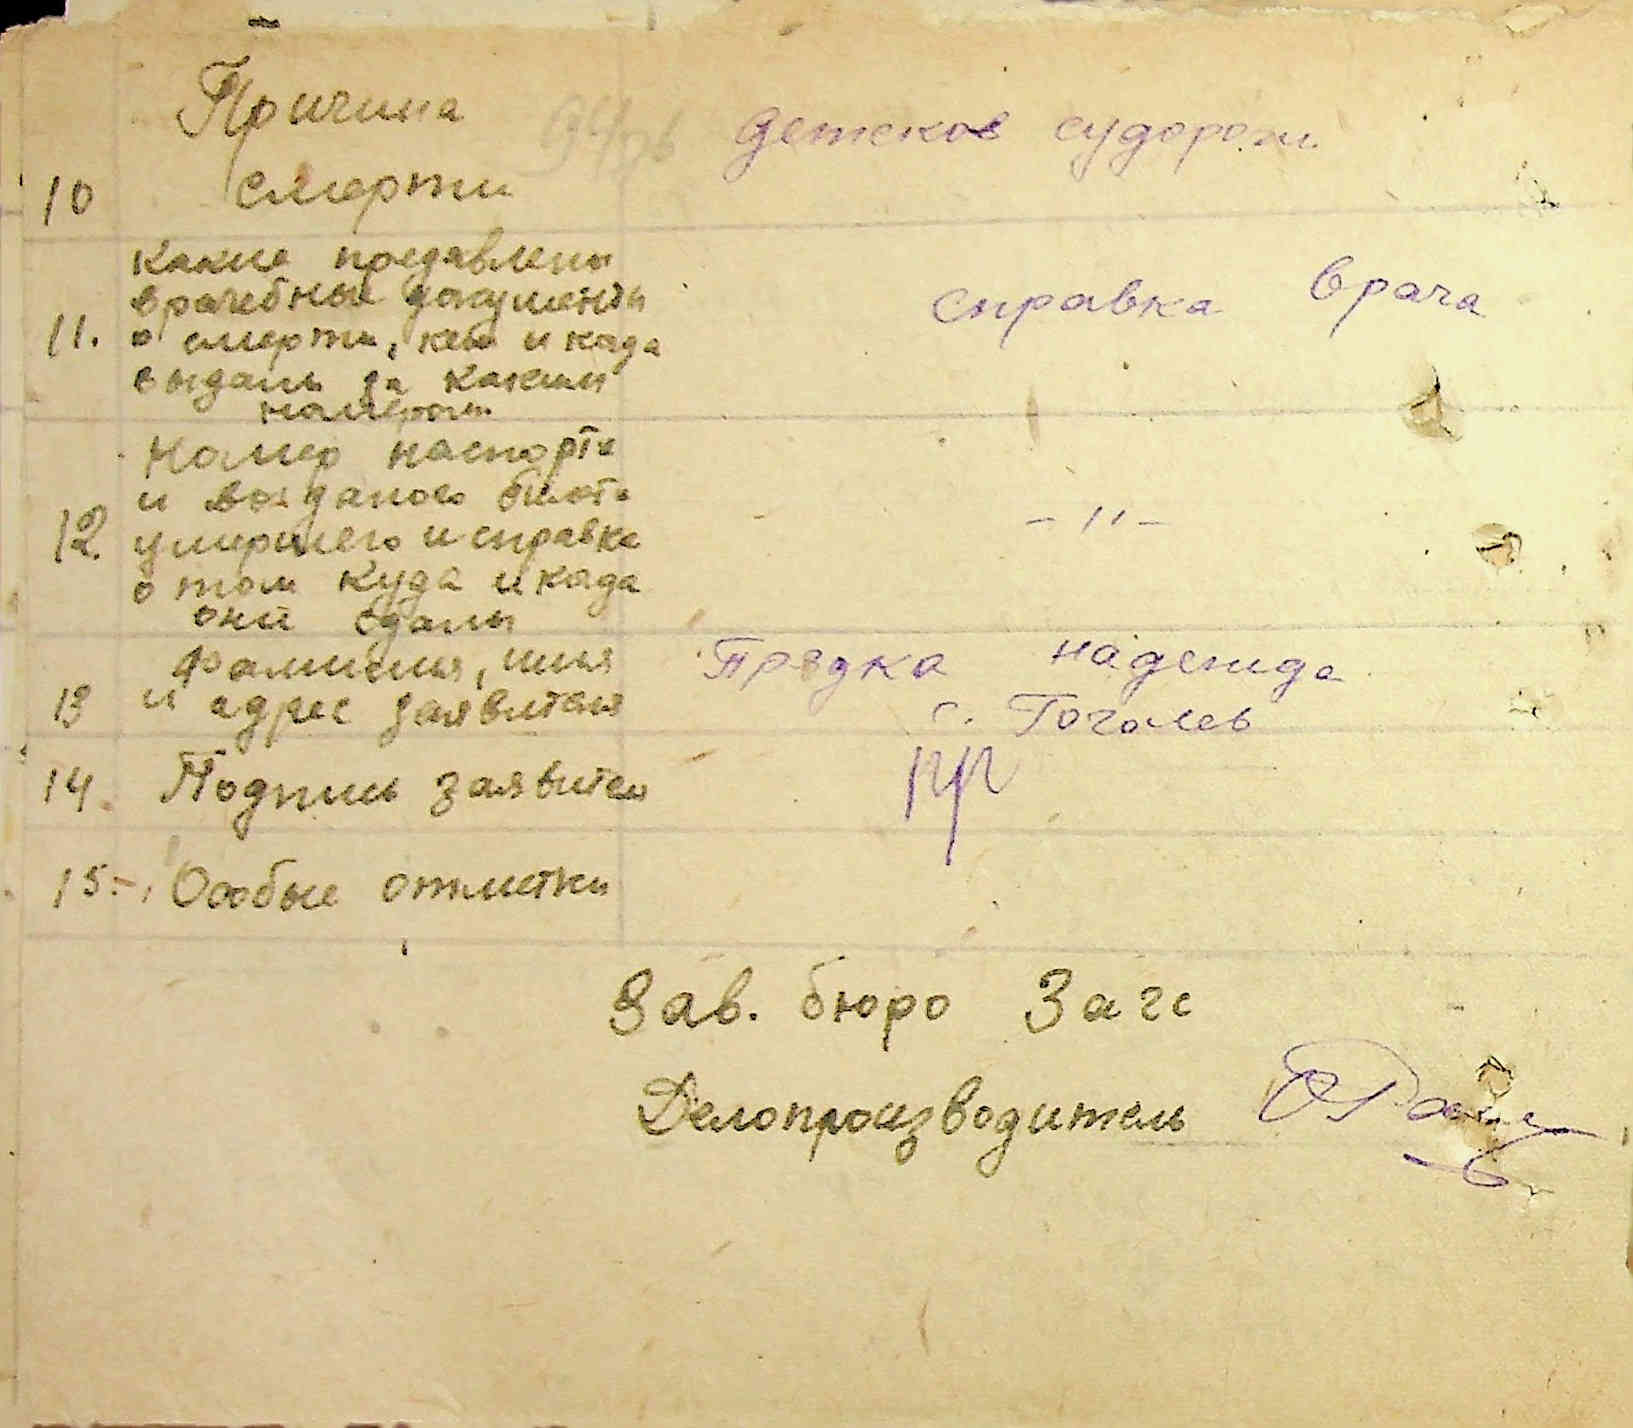 Причина
смерти
10
детское судороги
какие предявлены
врачебные документы
11. о смерти, кем и када
выданы за каким
номером
справка врача
Номер паспорта
и воз даного билета
12. умершего и справка
о том куда и када
они сданы
- " -
Фамилия, имя
13 и адрес заявителя
Прядка Надежда
с. Гоголев
14. Подпись заявител
15. Особые отметки
Зав. бюро Загс
Делопроизводитель